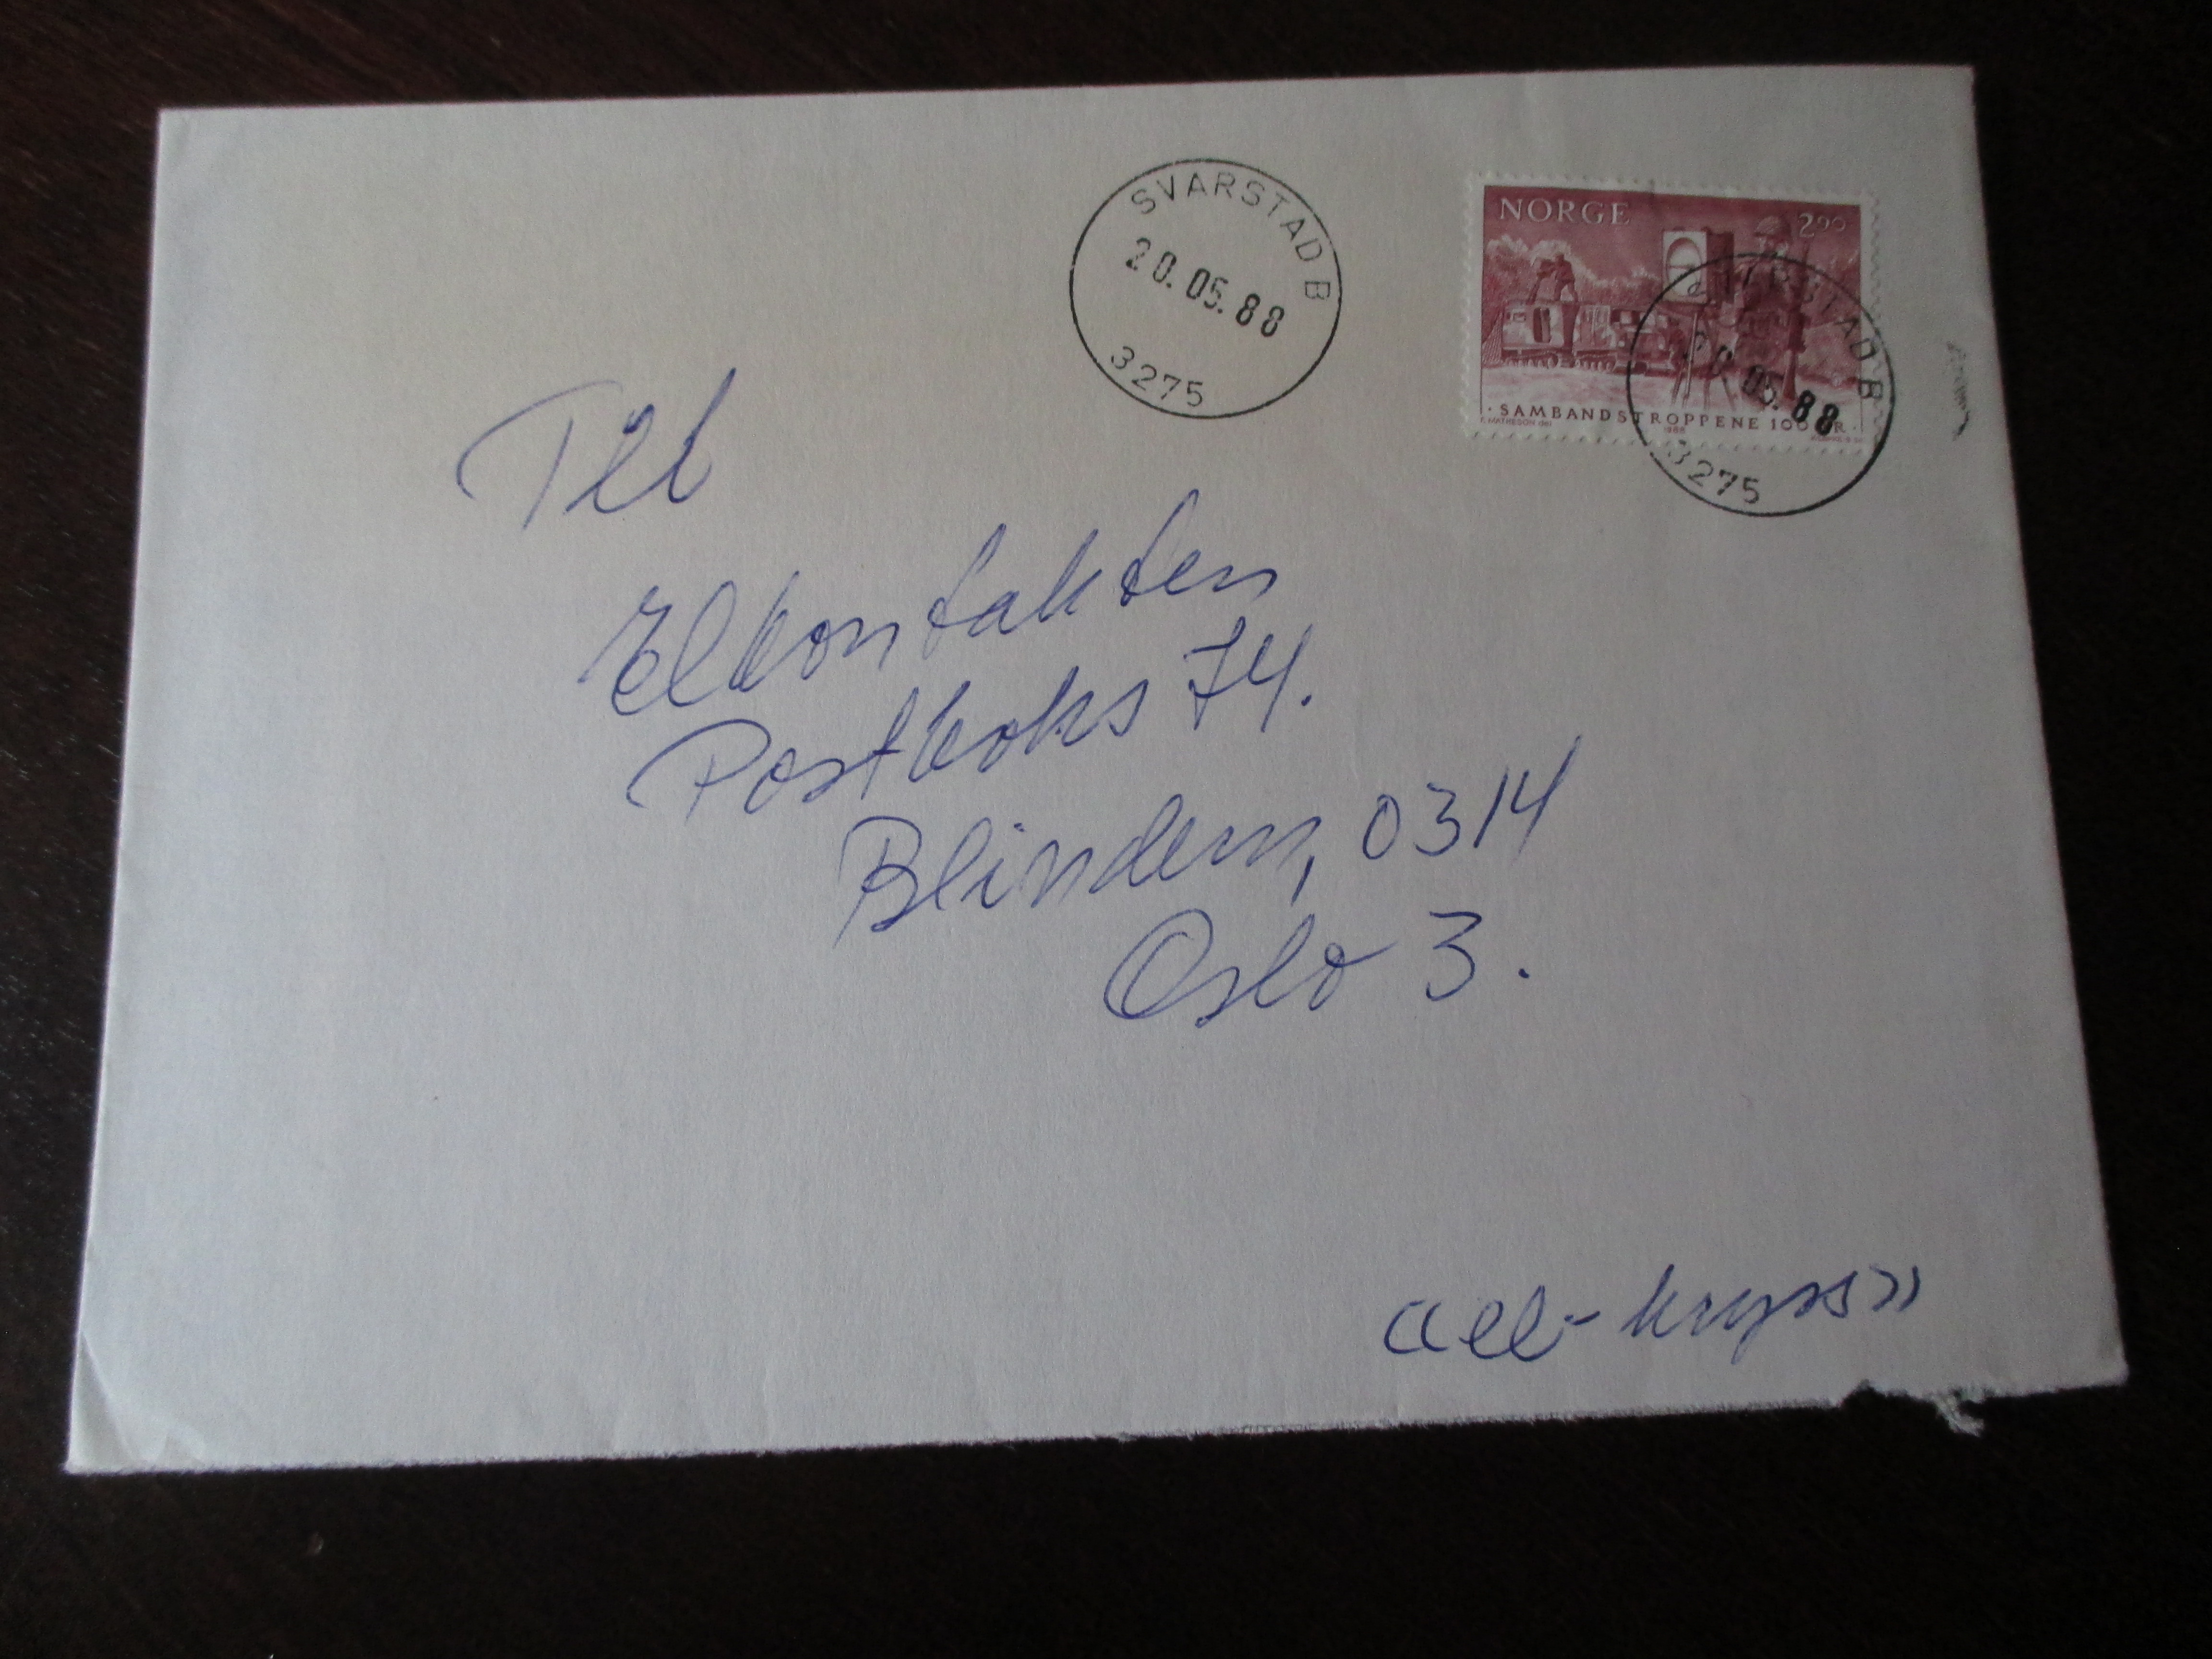 SVARSTAD B
20.05.88
3275
NORGE 2⁹⁰
· SAMBANDSTROPPENE 100 ÅR ·
1988
SVARSTAD B
20.05.88
3275
Til
Elkontakten
Postboks 74.
Blindern, 0314
Oslo 3.
«el-kryss»